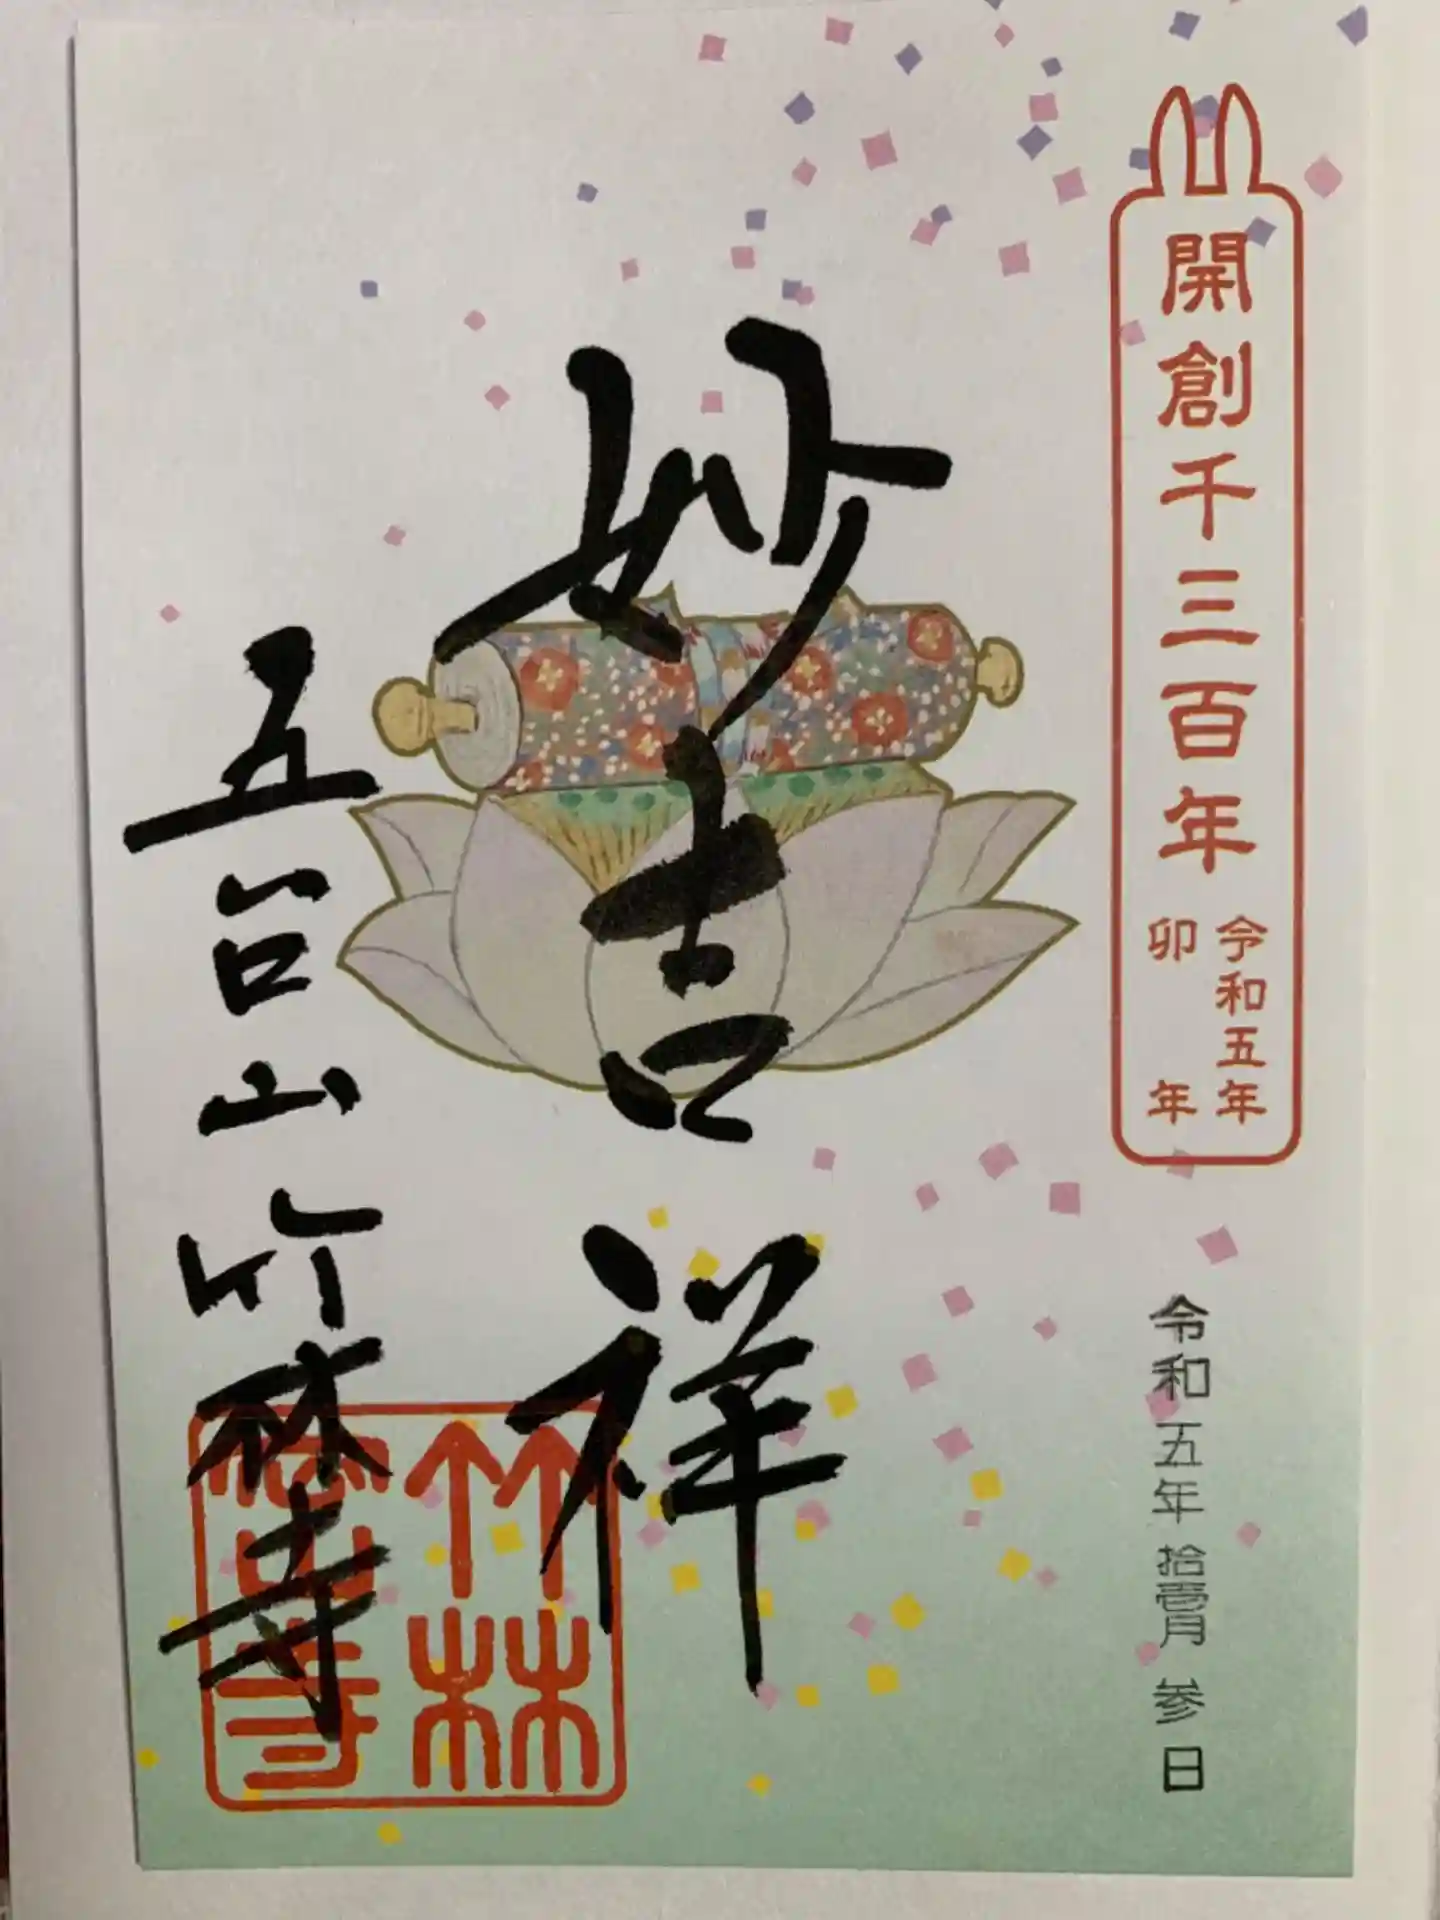 開創千三百年
令和五年
卯年
令和五年拾壹月参日
妙吉祥
五台山竹林寺
竹林
寺